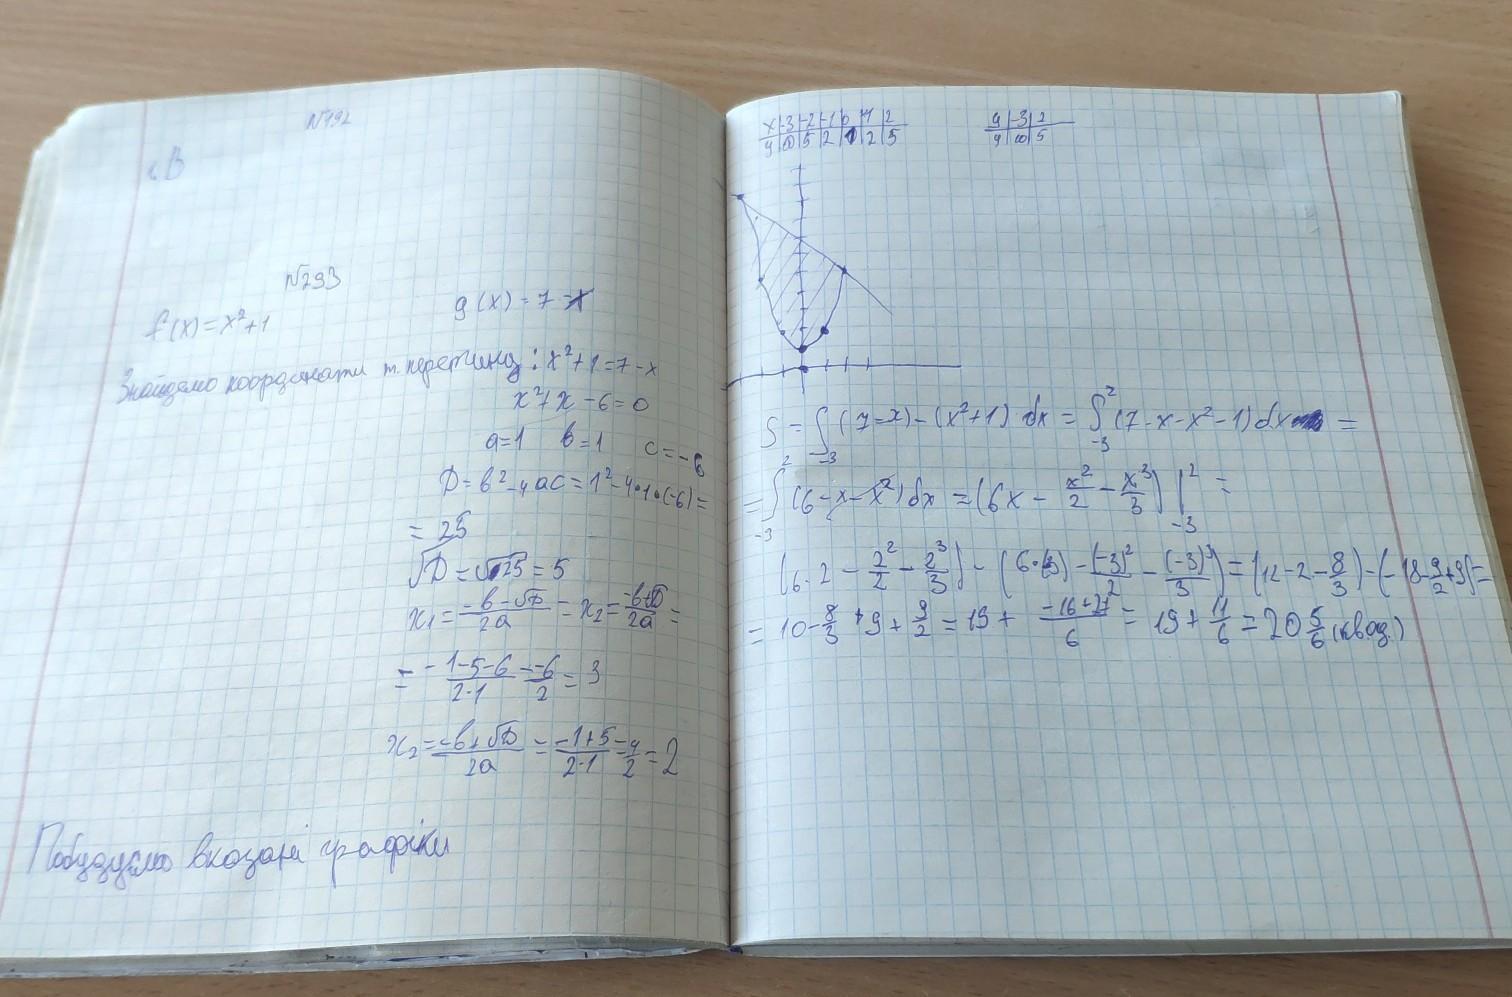 №792
B
№293
f(x) = x²+1
g(x) = 7-x
Знайдемо координати т. перетину: x²+1=7-x
x²+x-6=0
a=1 b=1 c=-6
D=b²-4ac=1²-4·1·(-6)=
= 25
√D=√25=5
x₁=(-b-√D)/2a= x₂=(-b+√D)/2a=
= (-1-5-6)/(2·1) = -6/2 = 3
x₂=(-b+√D)/2a = (-1+5)/(2·1) = 4/2 = 2
Побудуємо вказані графіки
x|-3|-2|-1|0|1|2
y|10|5|2|1|2|5
y|-3|2
y|10|5
S = ∫₋₃² (7-x)-(x²+1) dx = ∫₋₃² (7-x-x²-1)dx =
= ∫₋₃² (6-x-x²)dx = (6x - x²/2 - x³/3) |₋₃² =
(6·2 - 2²/2 - 2³/3) - (6·(-3) - (-3)²/2 - (-3)³/3) = (12-2-8/3)-(-18-9/2+9)=
= 10-8/3+9+9/2 = 19+ (-16+27)/6 = 19+11/6 = 20 5/6 (кв од.)